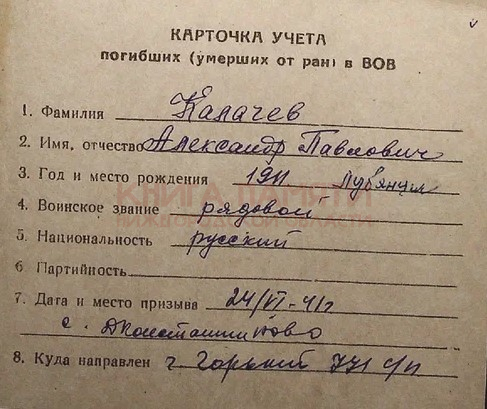 КАРТОЧКА УЧЕТА
погибших (умерших от ран) в ВОВ
1. Фамилия Калачев
2. Имя, отчество Александр Павлович
3. Год и место рождения 1911
КНИГА ПАМЯТИ
4. Воинское звание рядовой
НИЖЕГОРОДСКОЙ ОБЛАСТИ
5. Национальность русский
6 Партийность
7. Дата и место призыва 24/VI-41г
с.
8. Куда направлен г Горький 771 с/п